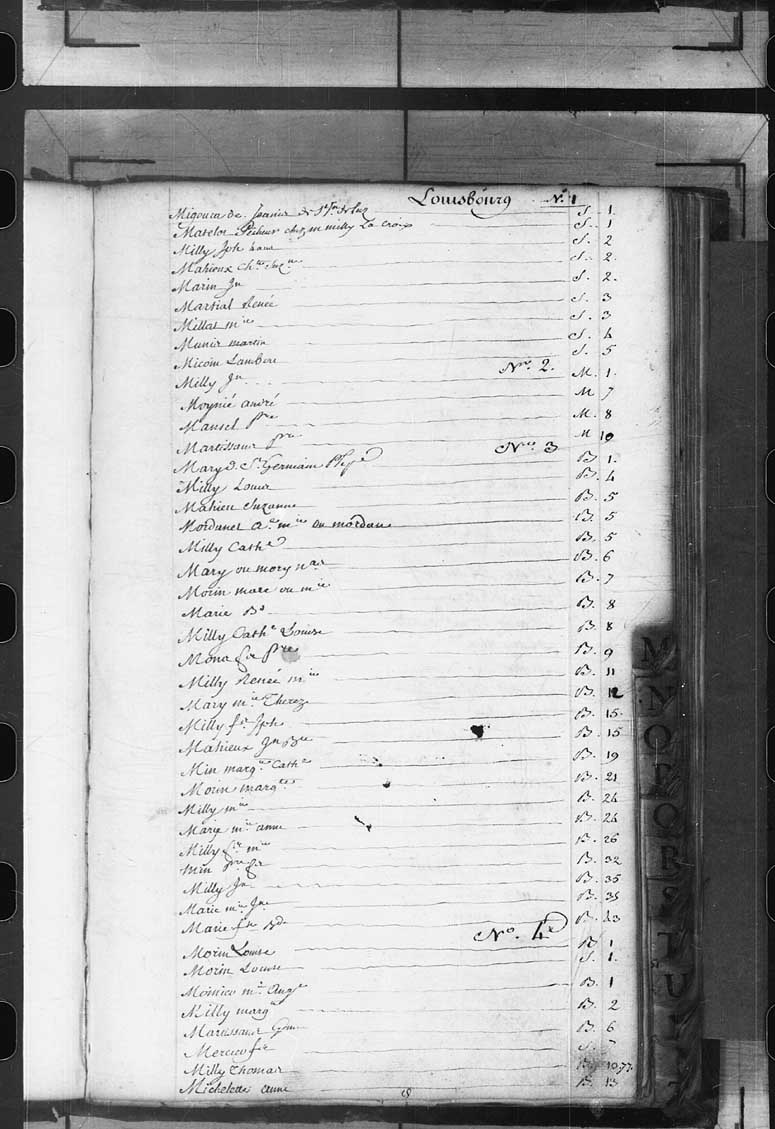 Louisbourg N.o 1
Migoura de Jeanis de St Jn de Luz S. 1.
Matelot Pecheur chez m milly La Croix S. 1
Milly Jph S. 2
Mahieux Ch. Suz.ne S. 2.
Marin Jn S. 2.
Martial Renée S. 3
Millat m.ie S. 3
Munir martin S. 4
Micoin Lambert S. 5
N.ro 2.
Milly Jn M. 1.
Moynié andré M 7
Mansel p.re M. 8
Martissans p.re M 10
N.ro 3
Mary d. St Germain B. 1.
Milly Louis B. 4
Mahieu Suzanne B. 5
Mordanet a.e m.ie ou mordan B. 5
Milly Cath.e B. 5
Mary ou mory B. 6
Morin marc ou m.ie B. 7
Marie B. 8
Milly Cath.e Louise B. 8
Mona p.re B. 9
Milly Renée m.ie B. 11
Mary m.ie Therez B. 12
Milly f.s Jph B. 15.
Mahieux Jn B.te B. 15
Min marg.te Cath.e B. 19
Morin marg.te B. 21
Milly m.ie B. 24
Marie m.ie anne B. 24
Milly m.ie B. 26
Min p.re B. 32
Milly Jn B. 35
Marie m.ie Jn.e B. 35
Marie B. 43
N.o 4.e
Morin Louise B 1
Morin Louise S. 1.
m.ie Ang.e B. 1
Milly marg.te B. 2
Martissans B. 6
Mercier S. 7
Milly Thomas B. 10.77.
Michelette anne B. 13
M
N
O
P
Q
R
S
T
U